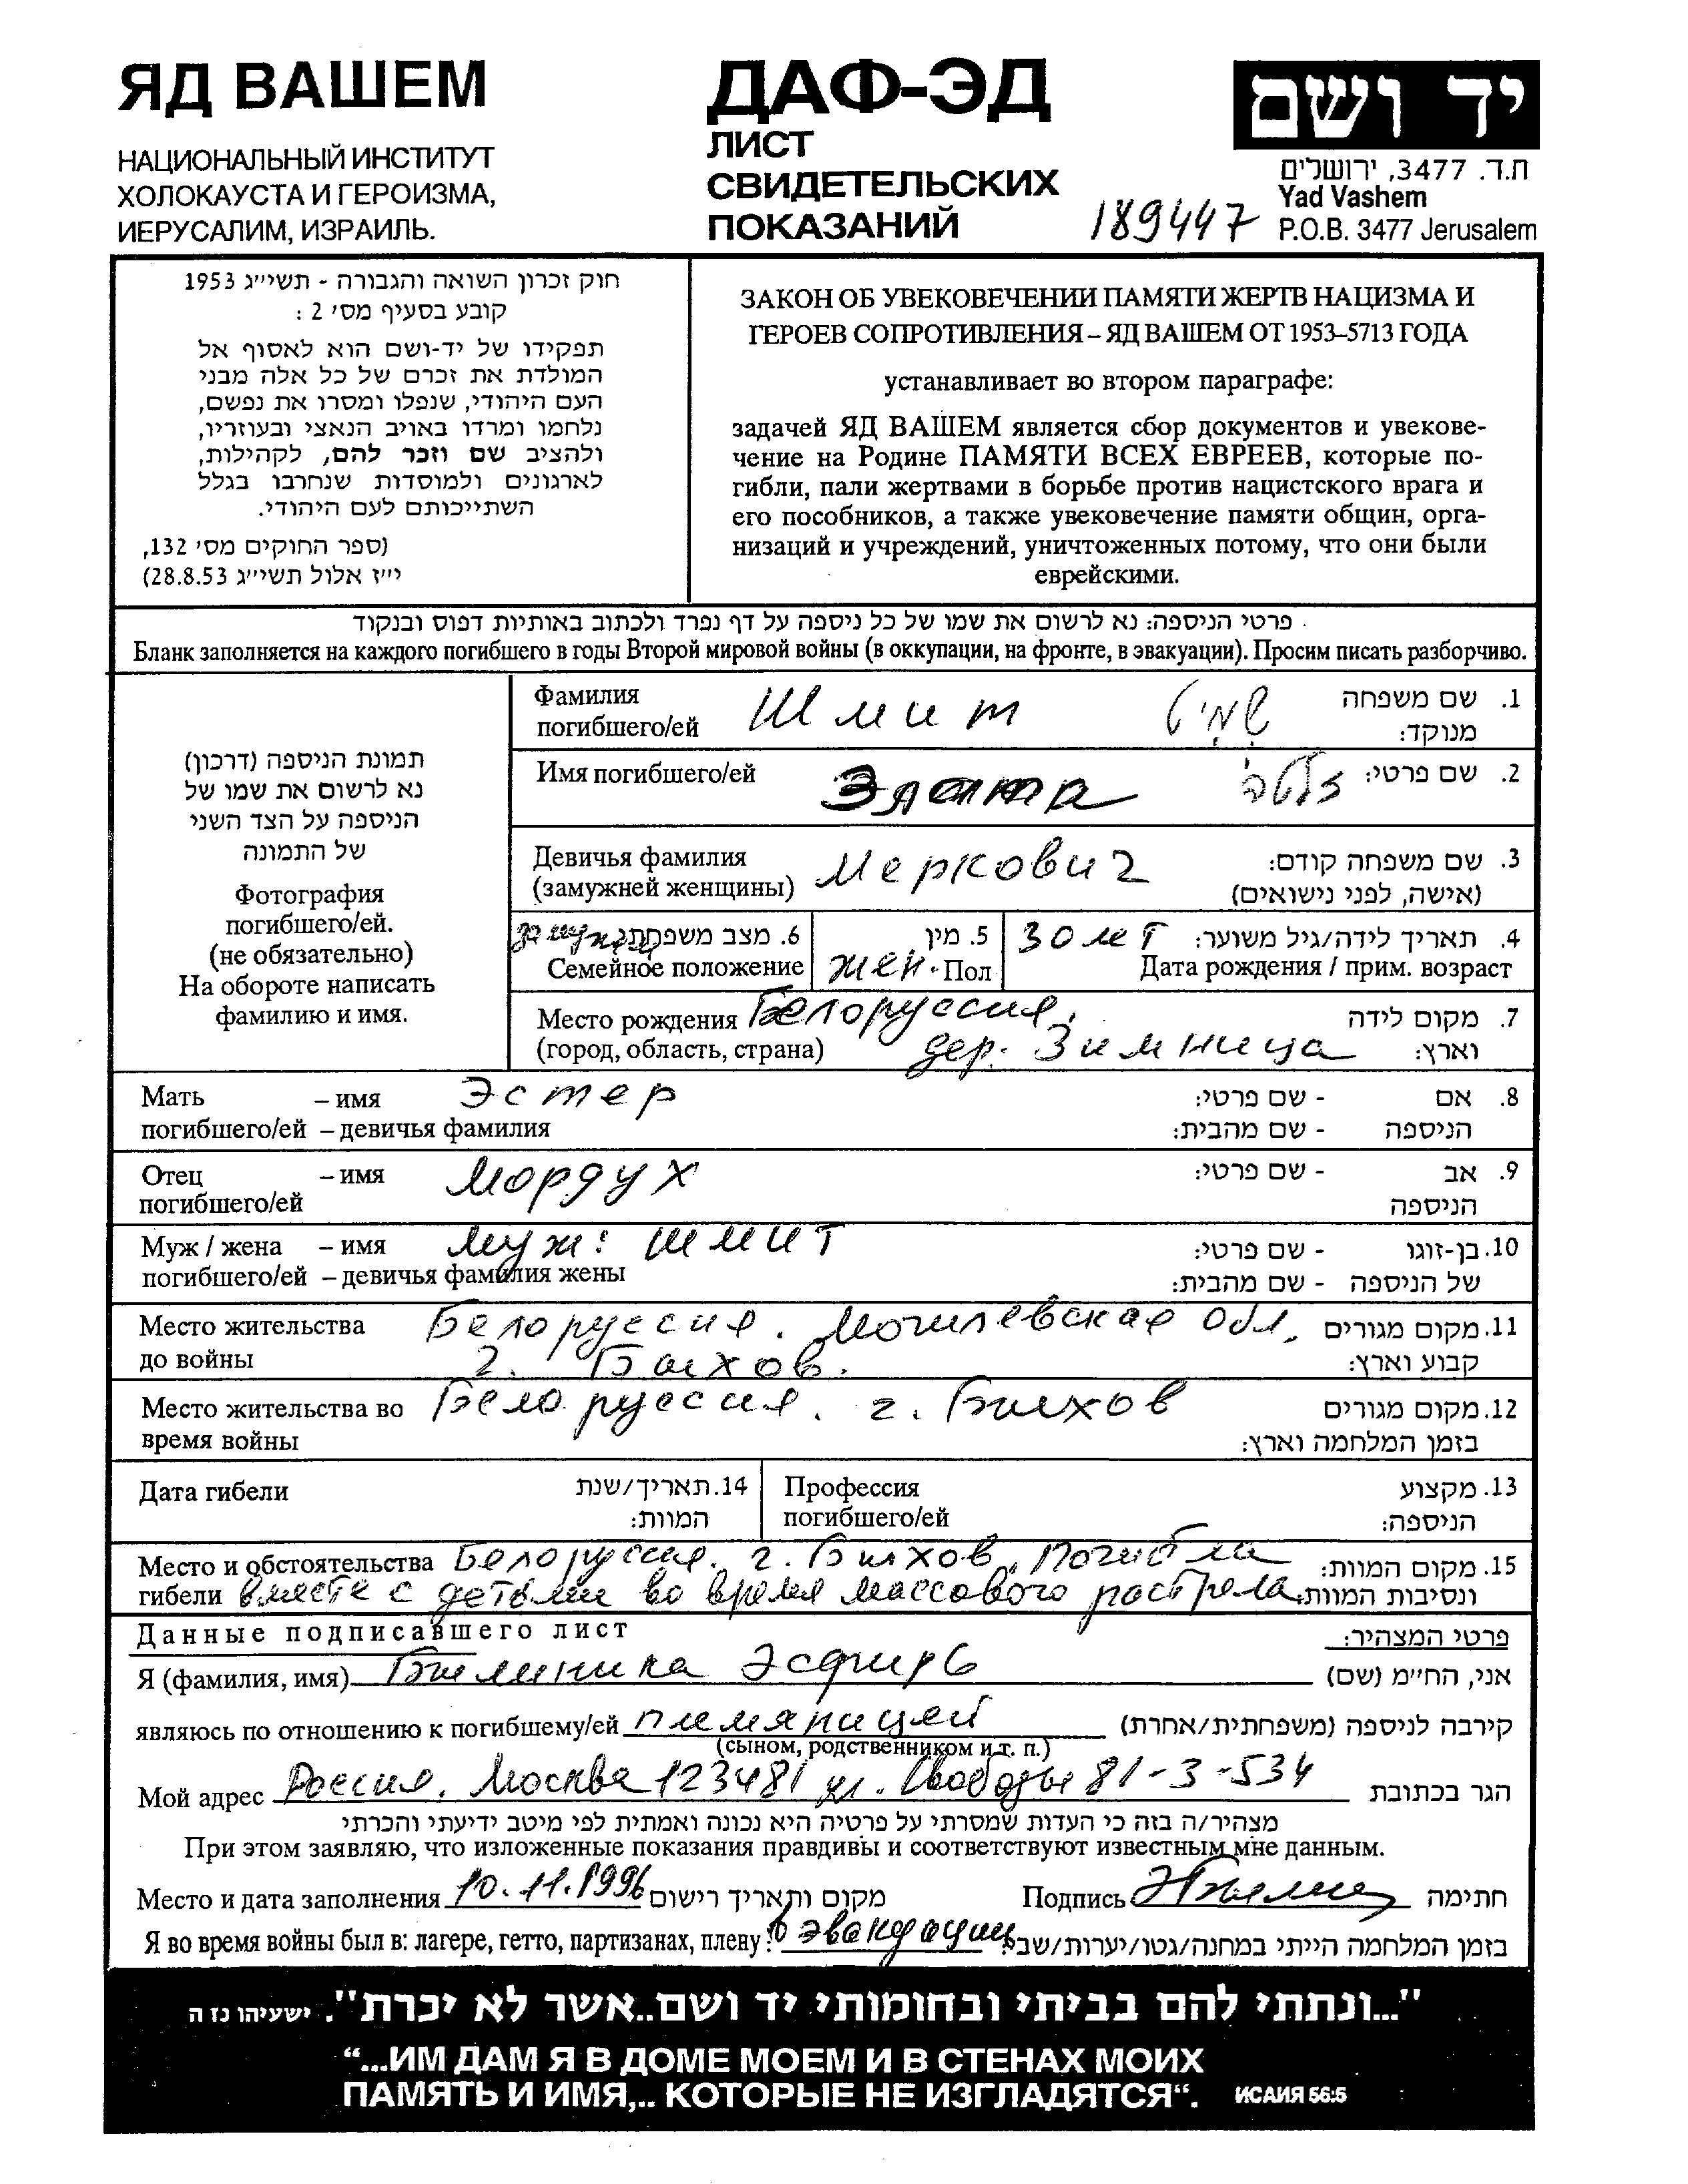 ЯД ВАШЕМ
НАЦИОНАЛЬНЫЙ ИНСТИТУТ
ХОЛОКАУСТА И ГЕРОИЗМА,
ИЕРУСАЛИМ, ИЗРАИЛЬ.
ДАФ-ЭД
ЛИСТ
СВИДЕТЕЛЬСКИХ
ПОКАЗАНИЙ
189447
יד ושם
ת.ד. 3477, ירושלים
Yad Vashem
P.O.B. 3477 Jerusalem
חוק זכרון השואה והגבורה - תשי״ג 1953
קובע בסעיף מס׳ 2 :
תפקידו של יד-ושם הוא לאסוף אל
המולדת את זכרם של כל אלה מבני
העם היהודי, שנפלו ומסרו את נפשם,
נלחמו ומרדו באויב הנאצי ובעוזריו,
ולהציב שם וזכר להם, לקהילות,
לארגונים ולמוסדות שנחרבו בגלל
השתייכותם לעם היהודי.
(ספר החוקים מס׳ 132,
י״ז אלול תשי״ג 28.8.53)
ЗАКОН ОБ УВЕКОВЕЧЕНИИ ПАМЯТИ ЖЕРТВ НАЦИЗМА И
ГЕРОЕВ СОПРОТИВЛЕНИЯ – ЯД ВАШЕМ ОТ 1953–5713 ГОДА
устанавливает во втором параграфе:
задачей ЯД ВАШЕМ является сбор документов и увекове-
чение на Родине ПАМЯТИ ВСЕХ ЕВРЕЕВ, которые по-
гибли, пали жертвами в борьбе против нацистского врага и
его пособников, а также увековечение памяти общин, орга-
низаций и учреждений, уничтоженных потому, что они были
еврейскими.
פרטי הניספה: נא לרשום את שמו של כל ניספה על דף נפרד ולכתוב באותיות דפוס ובנקוד
Бланк заполняется на каждого погибшего в годы Второй мировой войны (в оккупации, на фронте, в эвакуации). Просим писать разборчиво.
תמונת הניספה (דרכון)
נא לרשום את שמו של
הניספה על הצד השני
של התמונה
Фотография
погибшего/ей.
(не обязательно)
На обороте написать
фамилию и имя.
Фамилия Шмит שמיט 1. שם משפחה
погибшего/ей מנוקד:
Имя погибшего/ей Злата זלטה 2. שם פרטי:
Девичья фамилия Меркович 3. שם משפחה קודם:
(замужней женщины) (אישה, לפני נישואים)
замужем 6. מצב משפחתי 5. מין 30 лет 4. תאריך לידה/גיל משוער:
Семейное положение жен. Пол Дата рождения / прим. возраст
Место рождения Белоруссия, 7. מקום לידה
(город, область, страна) дер. Зимница וארץ:
Мать – имя Эстер 8. אם - שם פרטי:
погибшего/ей – девичья фамилия הניספה - שם מהבית:
Отец – имя Мордух 9. אב - שם פרטי:
погибшего/ей הניספה
Муж / жена – имя Муж: Шмит 10. בן-זוגו - שם פרטי:
погибшего/ей – девичья фамилия жены של הניספה - שם מהבית:
Место жительства Белоруссия. Могилевская обл. 11. מקום מגורים
до войны г. Быхов. קבוע וארץ:
Место жительства во Белоруссия. г. Быхов 12. מקום מגורים
время войны בזמן המלחמה וארץ:
Дата гибели 14. תאריך/שנת Профессия 13. מקצוע
המוות: погибшего/ей הניספה:
Место и обстоятельства Белоруссия. г. Быхов. Погибла 15. מקום המוות:
гибели вместе с детьми во время массового растрела ונסיבות המוות:
Данные подписавшего лист פרטי המצהיר:
Я (фамилия, имя) Былинка Эсфирь אני, הח״מ (שם)
являюсь по отношению к погибшему/ей племяницей קירבה לניספה (משפחתית/אחרת)
(сыном, родственником и т. п.)
Мой адрес Россия. Москва 123481 ул. Свободы 81-3-534 הגר בכתובת
מצהיר/ה בזה כי העדות שמסרתי על פרטיה היא נכונה ואמתית לפי מיטב ידיעתי והכרתי
При этом заявляю, что изложенные показания правдивы и соответствуют известным мне данным.
Место и дата заполнения 10.11.1996 מקום ותאריך רישום Подпись חתימה
Я во время войны был в: лагере, гетто, партизанах, плену? в эвакуации בזמן המלחמה הייתי במחנה/גטו/יערות/שבי?
"...ונתתי להם בביתי ובחומותי יד ושם..אשר לא יכרת". ישעיהו נז ה
“...ИМ ДАМ Я В ДОМЕ МОЕМ И В СТЕНАХ МОИХ
ПАМЯТЬ И ИМЯ,.. КОТОРЫЕ НЕ ИЗГЛАДЯТСЯ“. ИСАИЯ 56:5